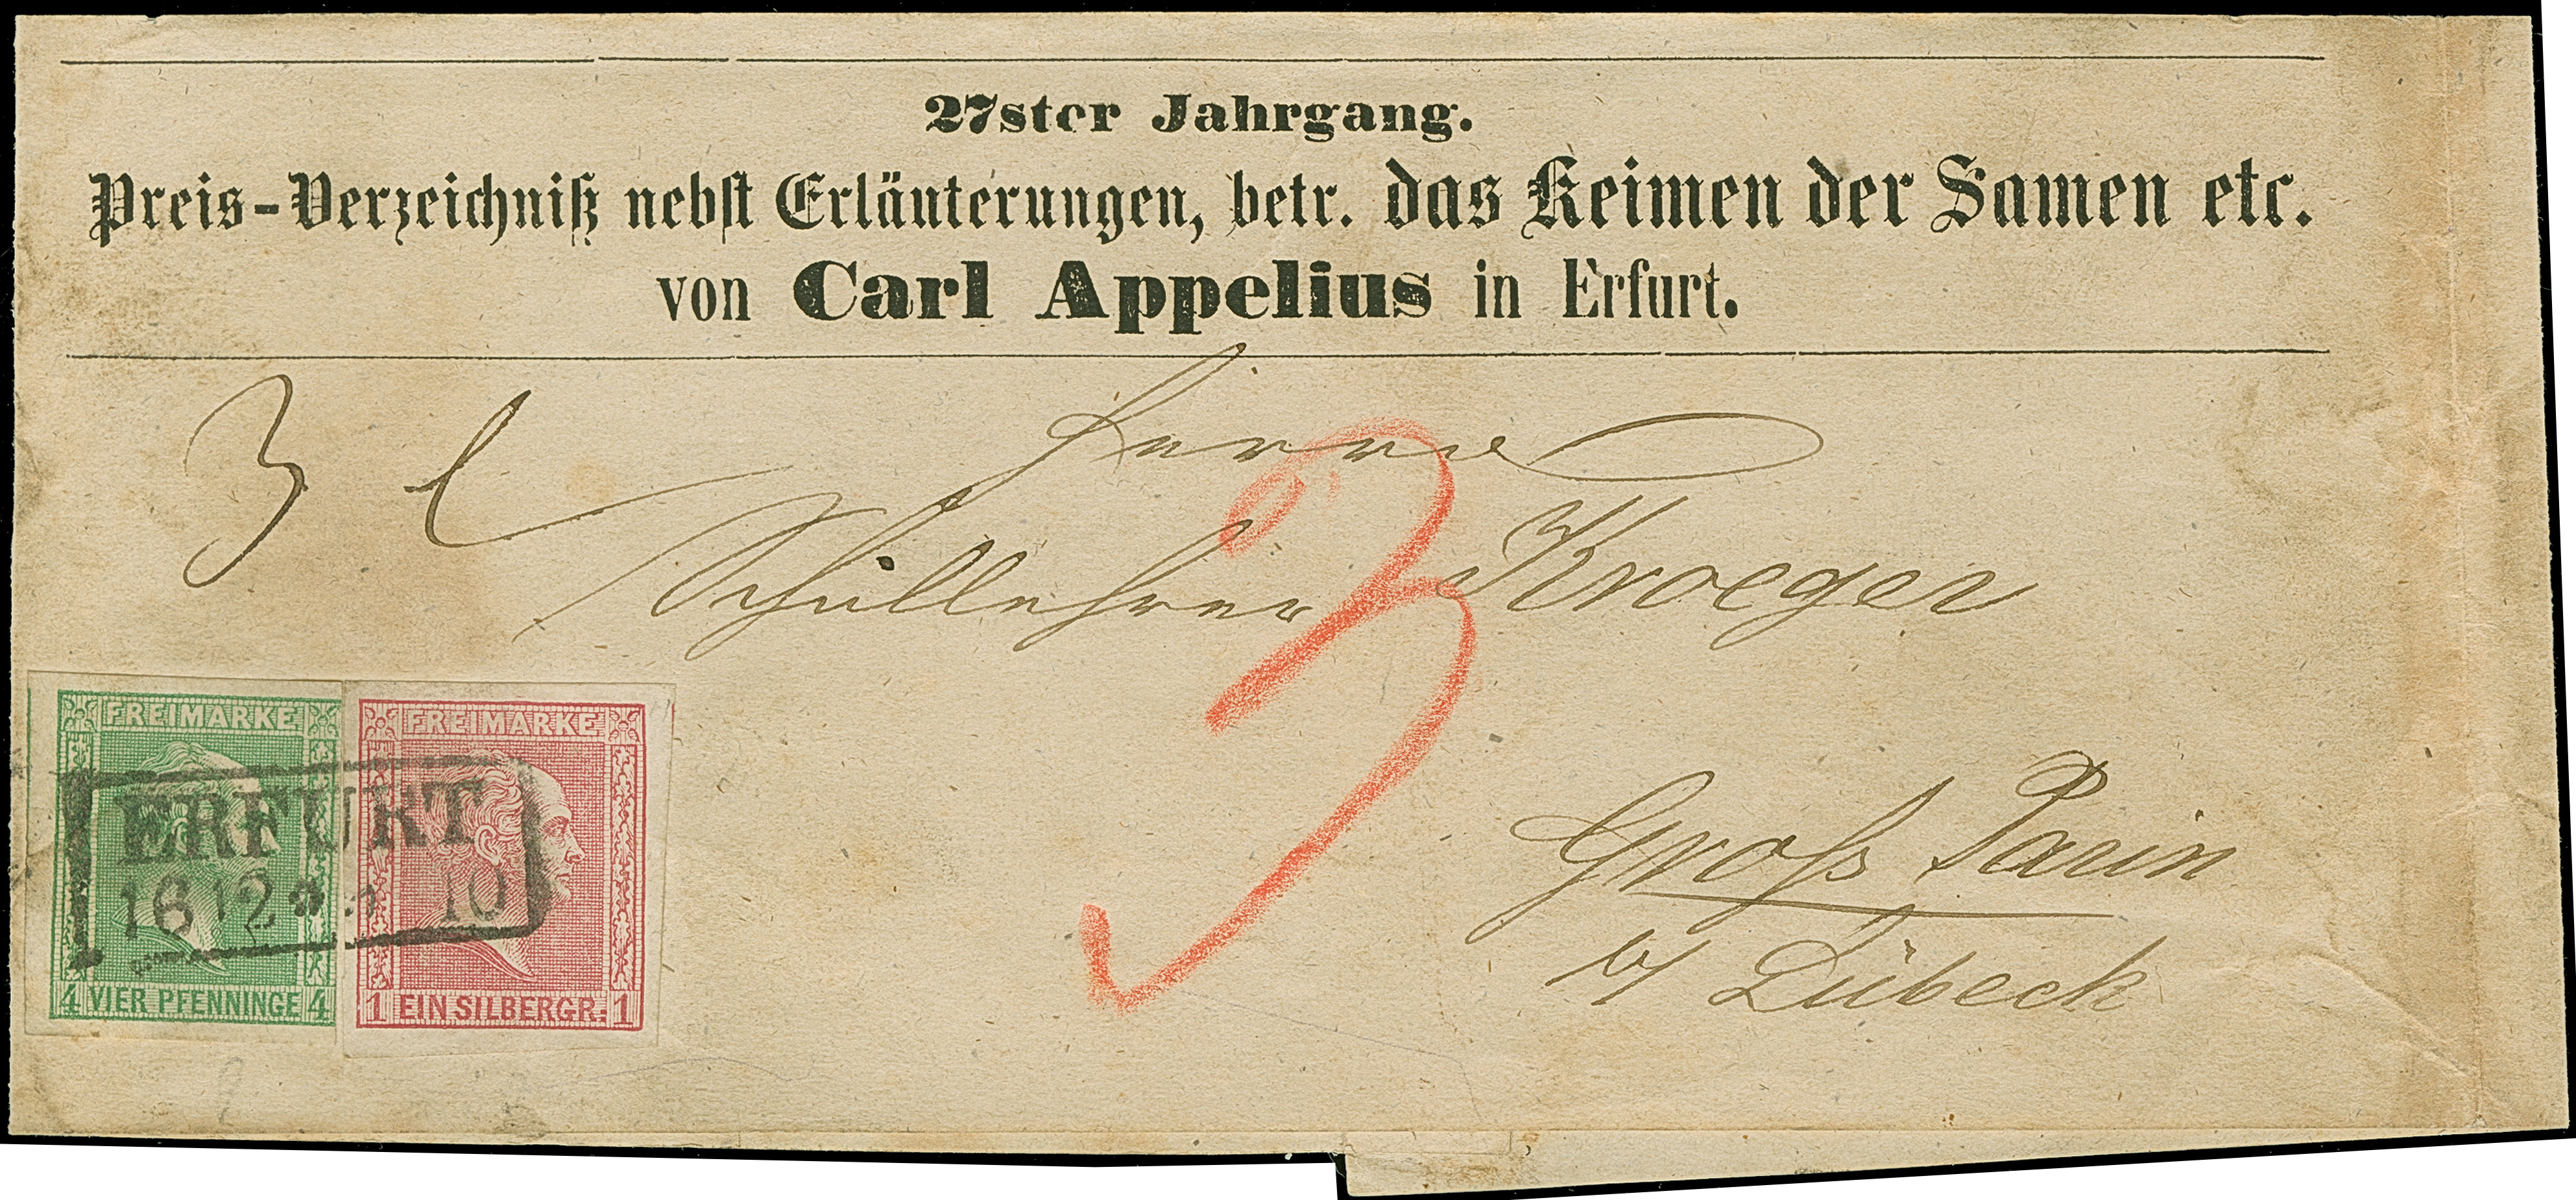 27ster Jahrgang.
Preis-Verzeichniß nebst Erläuterungen, betr. das Keimen der Samen etc.
von Carl Appelius in Erfurt.
3 l
Herrn
Schullehrer Kroeger
3
Groß Parin
b/ Lübeck
FREIMARKE
4 VIER PFENNINGE 4
FREIMARKE
1 EIN SILBERGR. 1
ERFURT
16 12 10